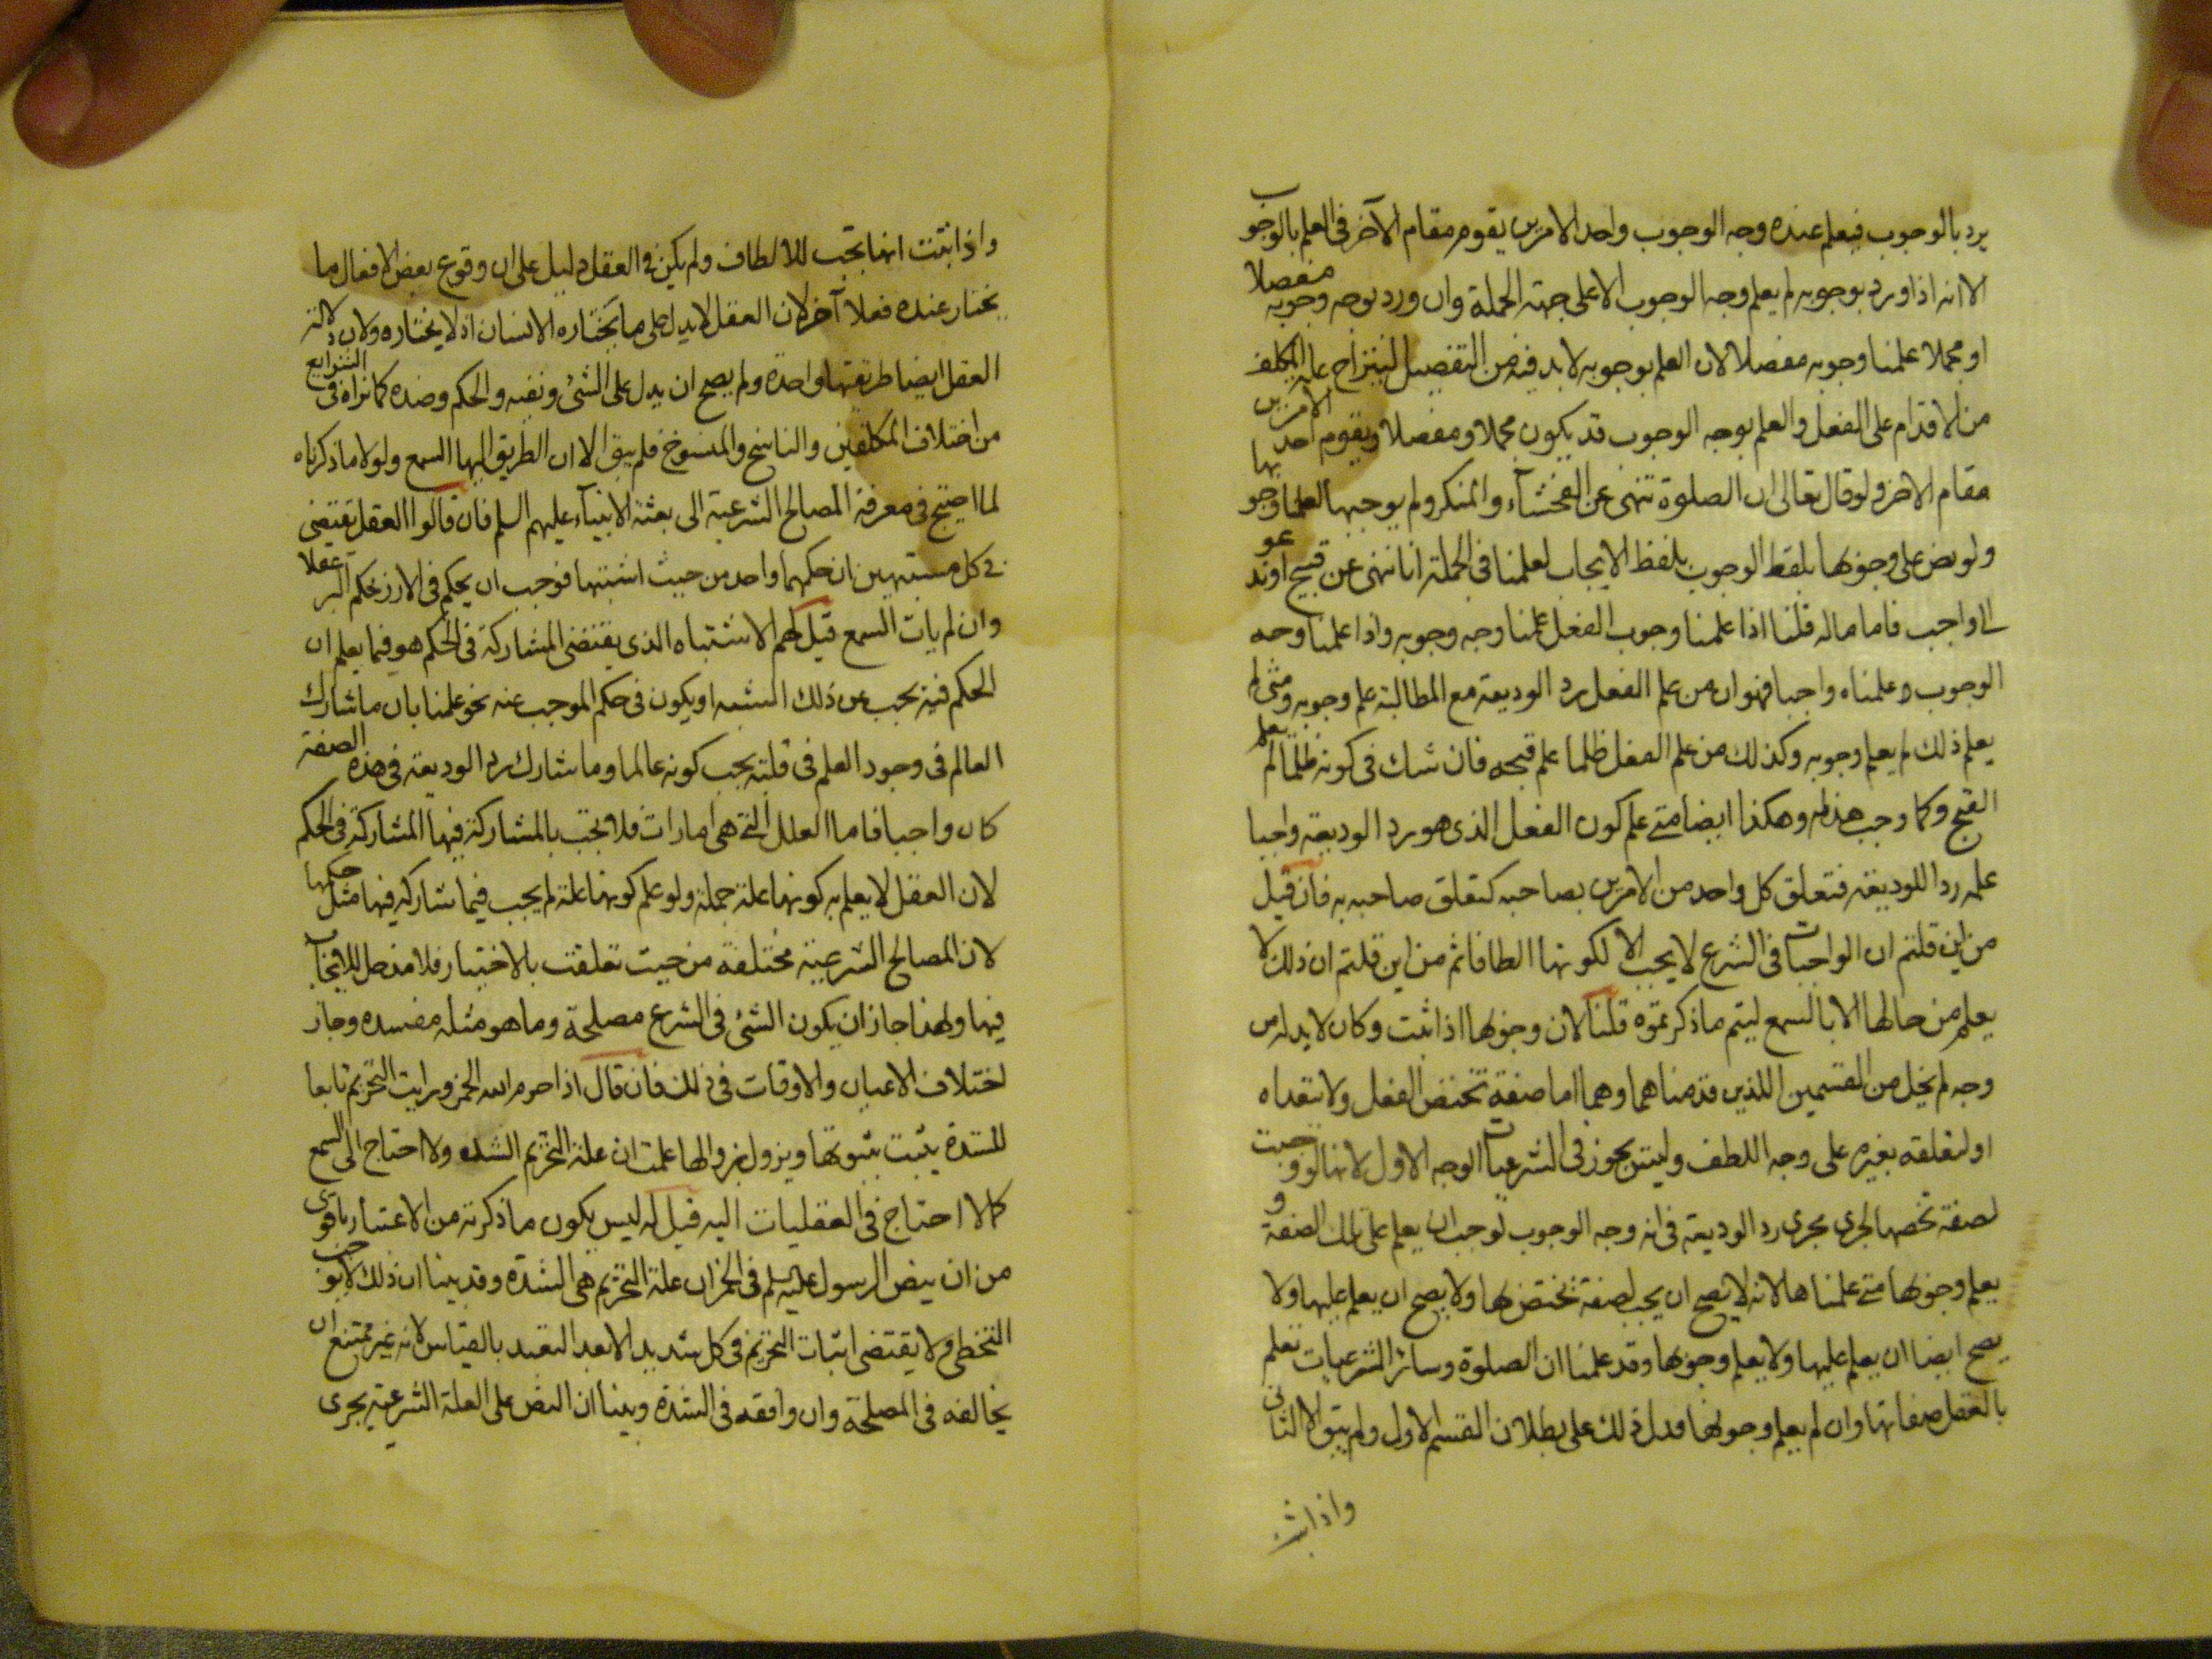 يرد بالوجوب فيعلم عنده وجه الوجوب واحد الامرين يقوم مقام الآخر فى العلم بالوجوب
الا انه اذا ورد بوجوبه لم يعلم وجه الوجوب الا على جهة الجملة وان ورد بوجه وجوبه مفصلا
او مجملا علمنا وجوبه مفصلا لان العلم بوجوبه لابد فيه من التفصيل لينزاح علة المكلف
من الاقدام على الفعل والعلم بوجه الوجوب قد يكون مجملا ومفصلا ويقوم احد الامرين
مقام الاخر ولو قال تعالى ان الصلوة تنهى عن الفحشآء والمنكر ولم يوجبها لعلمنا وجوبها
ولو نص على وجوبها بلفظ الوجوب بلفظ الايجاب لعلمنا فى الجملة انها تنهى عن قبيح او تدعو
الى واجب فاما ماله قلنا اذا علمنا وجوب الفعل علمنا وجه وجوبه واذا علمنا وجه
الوجوب وعلمناه واجبا فهو ان من علم الفعل رد الوديعة مع المطالبة علم وجوبه ومتى لم
يعلم ذلك لم يعلم وجوبه وكذلك من علم الفعل ظلما علم قبحه فان شك فى كونه ظلما لم يعلم
القبح وكما وجب هذا له وهكذا ايضا متى علم كون الفعل الذى هو رد الوديعة واجبا
علمه ردا للوديعة فتعلق كل واحد من الامرين بصاحبه كتعلق صاحبه به فان قيل
من اين قلتم ان الواجبات فى الشرع لا يجب الا لكونها الطافا ثم من اين قلتم ان ذلك لا
يعلم من حالها الا بالسمع ليتم ما ذكرتموه قلنا لان وجوبها اذا ثبت وكان لابد له من
وجه لم يخل من القسمين اللذين قدمناهما وهما اما صفة تختص الفعل ولا تتعداه
او لتعلقه بغيره على وجه اللطف وليس يجوز فى الشرعيات الوجه الاول لانها لو وجبت
لصفة تخصها لجرى مجرى رد الوديعة فى انه وجه الوجوب لوجب ان يعلم على تلك الصفة و
يعلم وجوبها متى علمناها لانه لا يصح ان يجب لصفة تختص بها ولا يصح ان يعلم عليها ولا
يصح ايضا ان يعلم عليها ولا يعلم وجوبها وقد علمنا ان الصلوة وسائر الشرعيات تعلم
بالعقل صفاتها وان لم يعلم وجوبها فدل ذلك على بطلان القسم الاول ولم يبق الا الثانى
واذا ثبت
واذا ثبت انها تجب للالطاف ولم يكن فى العقل دليل على ان وقوع بعض الافعال ما
يختار عنده فعلا آخر لان العقل لا يدل على ما يختاره الانسان او لا يختاره ولان دلالة
العقل ايضا طريقتها واحدة ولم يصح ان يدل على الشئ ونفيه والحكم وضده كما نراه فى الشرايع
من اختلاف المكلفين والناسخ والمنسوخ فلم يبق الا ان الطريق اليها السمع ولولا ما ذكرناه
لما احتيج فى معرفة المصالح الشرعية الى بعثة الانبيآء عليهم السلم فان قالوا العقل يقتضى
فى كل مشتبهين ان حكمهما واحد من حيث اشتبها فوجب ان يحكم فى الارز بحكم البر عقلا
وان لم يات السمع قيل لهم الاشتباه الذى يقتضى المشاركة فى الحكم هو فيما يعلم ان
الحكم فيه يجب عن ذلك الشبه او يكون فى حكم الموجب عنه نحو علمنا بان ما شارك
العالم فى وجود العلم فى قلبه يجب كونه عالما وما شارك رد الوديعة فى هذه الصفة
كان واجبا فاما العلل التى هى امارات فلا يجب بالمشاركة فيها المشاركة فى الحكم
لان العقل لا يعلم به كونها علة جملة ولو علم كونها علة لم يجب فيما شاركه فيها مثل حكمها
لان المصالح الشرعية مختلفة من حيث تعلقت بالاختيار فلا مدخل للايجاب
فيها ولهذا جاز ان يكون الشئ فى الشرع مصلحة وما هو مثله مفسدة وجاز
اختلاف الاعيان والاوقات فى ذلك فان قال اذا حرم الله الخمر ورايت التحريم تابعا
للشدة يثبت بثبوتها ويزول بزوالها علمت ان علة التحريم الشدة ولا احتاج الى السمع
كما لا احتاج فى العقليات اليه قيل له ليس يكون ما ذكرته من الاعتبار باقوى
من ان ينص الرسول عليه السلم فى الخمر ان علة التحريم هى الشدة وقد بينا ان ذلك لا يوجب
التخطى ولا يقتضى اثبات التحريم فى كل شديد الا بعد التعبد بالقياس لانه غير ممتنع ان
يخالفه فى المصلحة وان وافقه فى الشدة وبينا ان النص على العلة الشرعية يجرى